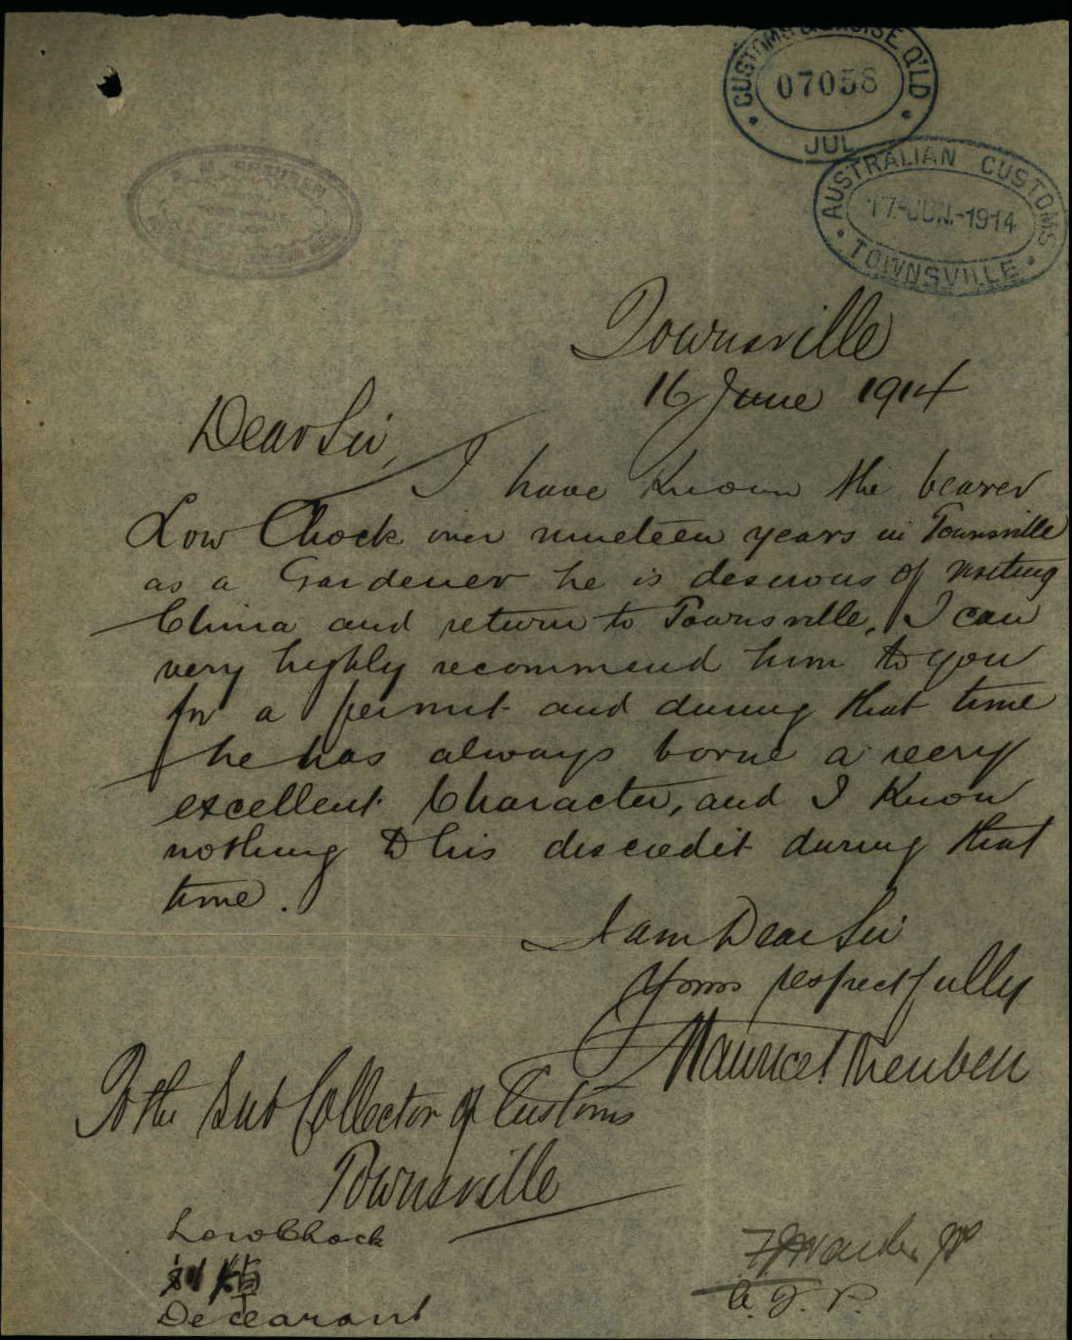 CUSTOMS & EXCISE Q'LD
07058
JUL
AUSTRALIAN CUSTOMS
17-JUN.-1914
TOWNSVILLE
Townsville
16 June 1914
Dear Sir,
I have known the bearer
Low Chock over nineteen years in Townsville
as a Gardener he is desirous of visiting
China and return to Townsville, I can
very highly recommend him to you
for a permit and during that time
he has always borne a very
excellent Character, and I Know
nothing to his discredit during that
time.
I am Dear Sir
Yours respectfully
Maurice Reuben
To the Sub Collector of Customs
Townsville
Low Chock
Declarant